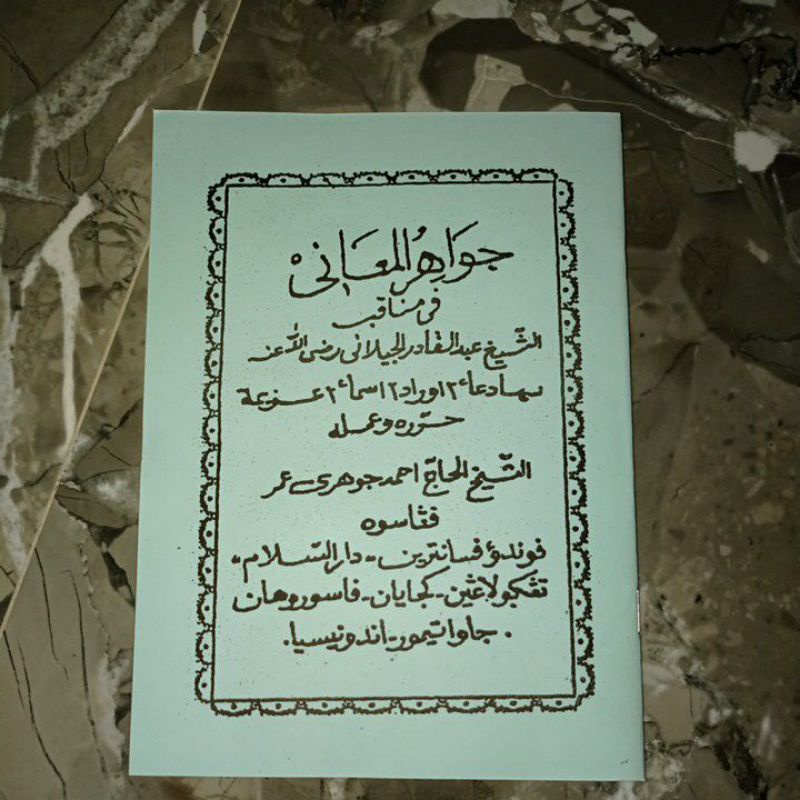 جَوَاهِرُ المَعَانِىْ
فى مناقب
الشّيخ عبد القادر الجيلانى رضى اللّٰه عنه
بهادعاء٢ اوراد٢ اسماء٢ عزيمة
حرّره وعمله
الشّيخ الحاجّ احمد جوهرى عمر
ڤڠاسوه
ڤوندؤ ڤسانترين - دار السّلام -
تڠكولاڠين - كجايان - ڤاسوروهان
. جاوا تيمور - اندونيسيا .